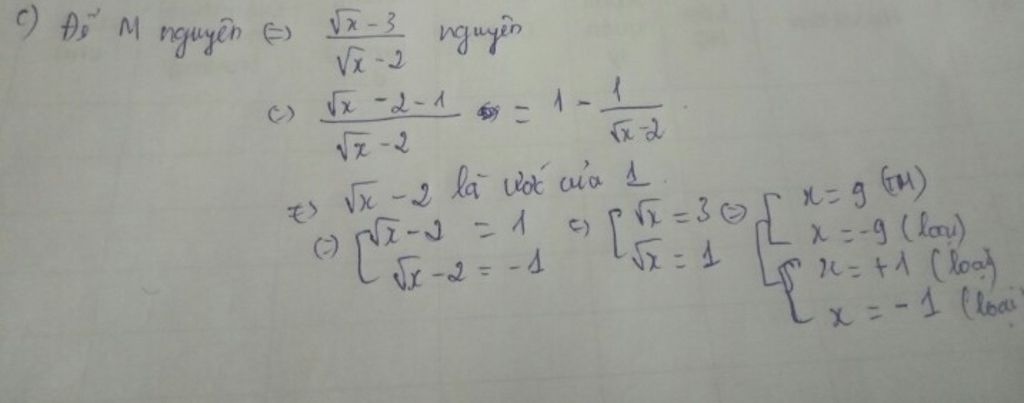 c) Để M nguyên (=) (√x - 3)/(√x - 2) nguyên
(=) (√x - 2 - 1)/(√x - 2) = 1 - 1/(√x - 2).
=) √x - 2 là ước của 1.
(=) [√x - 2 = 1 (=) [√x = 3 (=) [x = 9 (TM)
x = -9 (loại)
√x - 2 = -1 √x = 1 [x = +1 (loại)
x = -1 (loại)